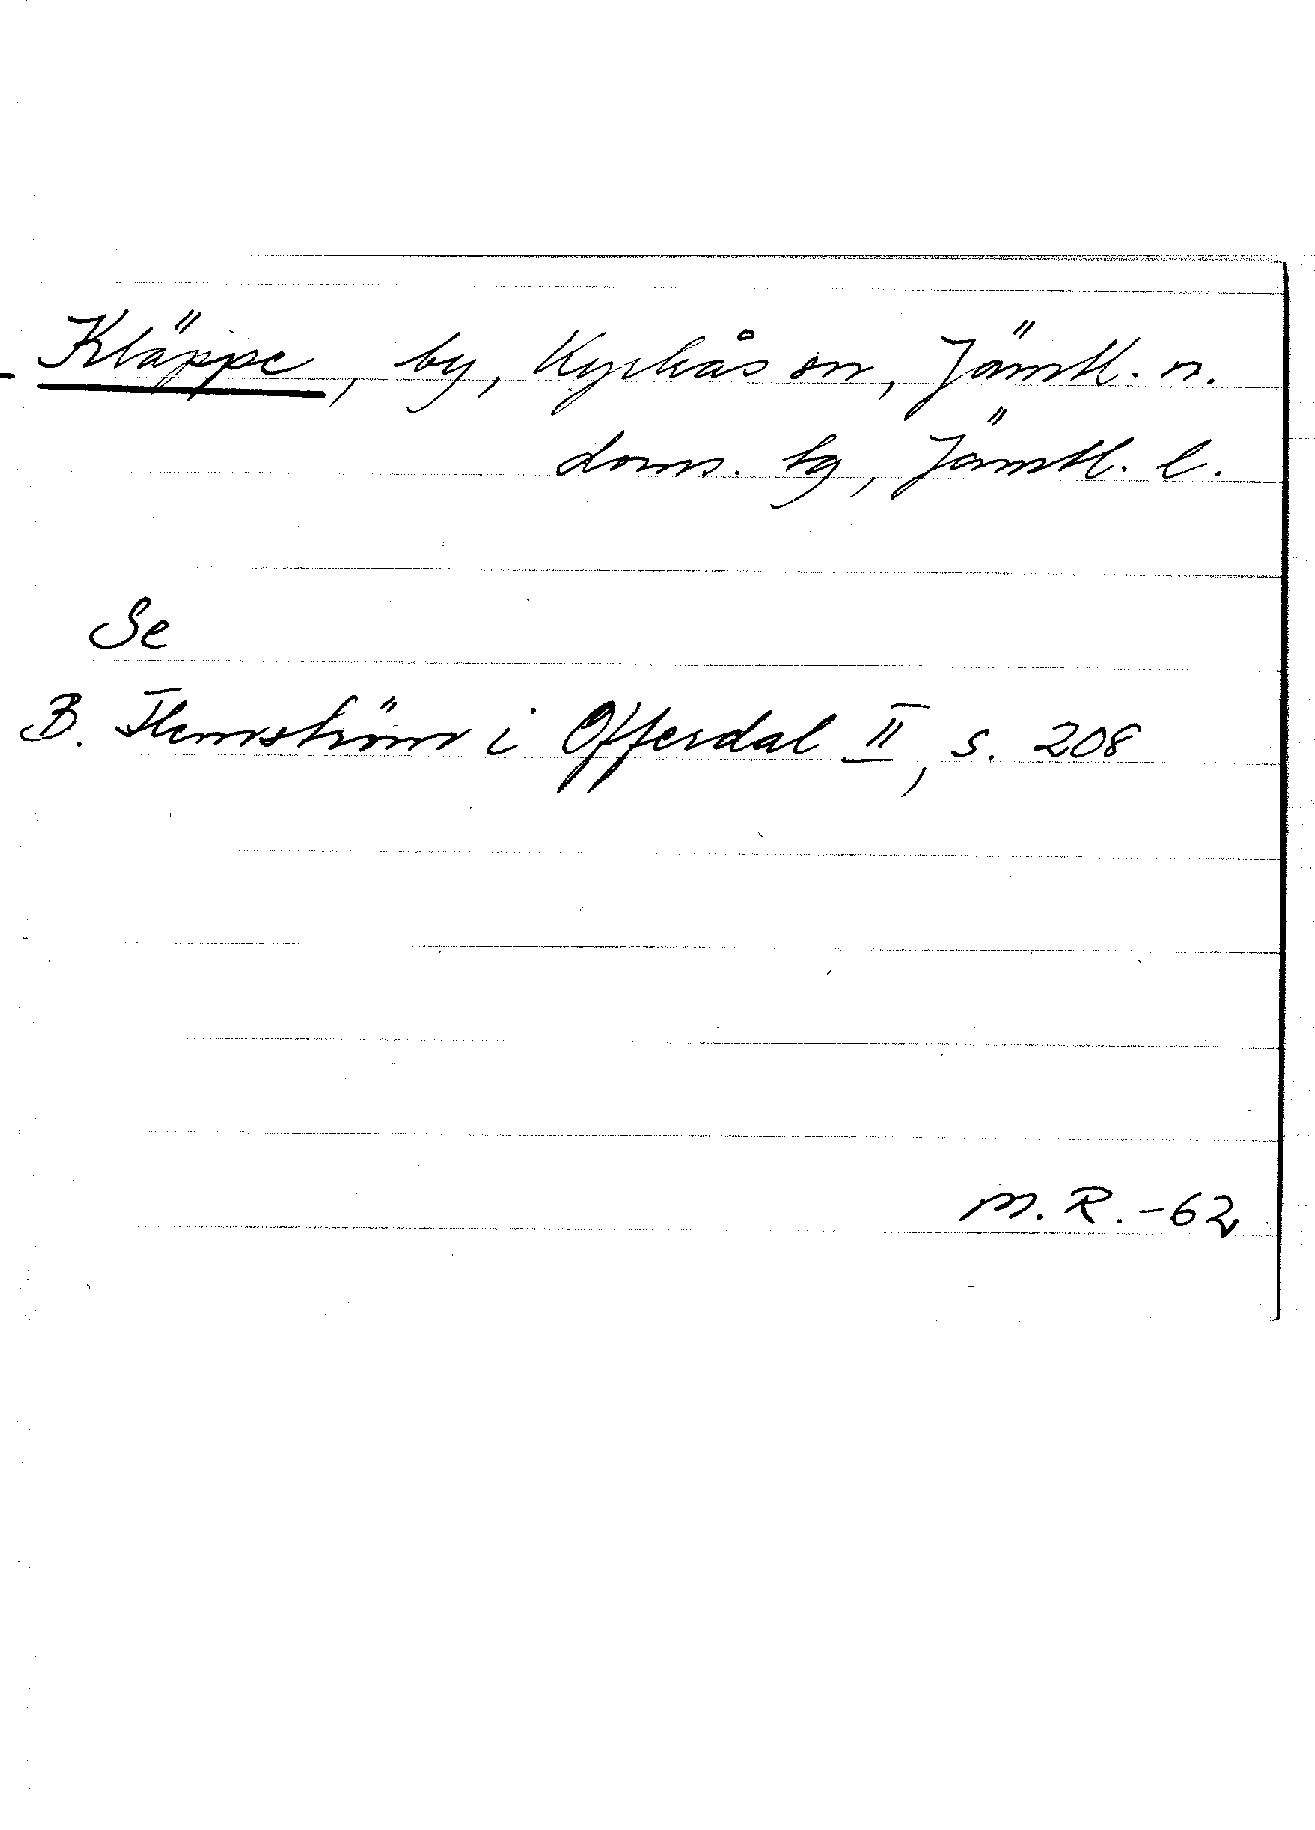 Kläppe, by, Kyrkås sn, Jämtl. n.
doms. tg, Jämtl. l.
Se
B. Flemström i Offerdal II, s. 208
M. R. -62